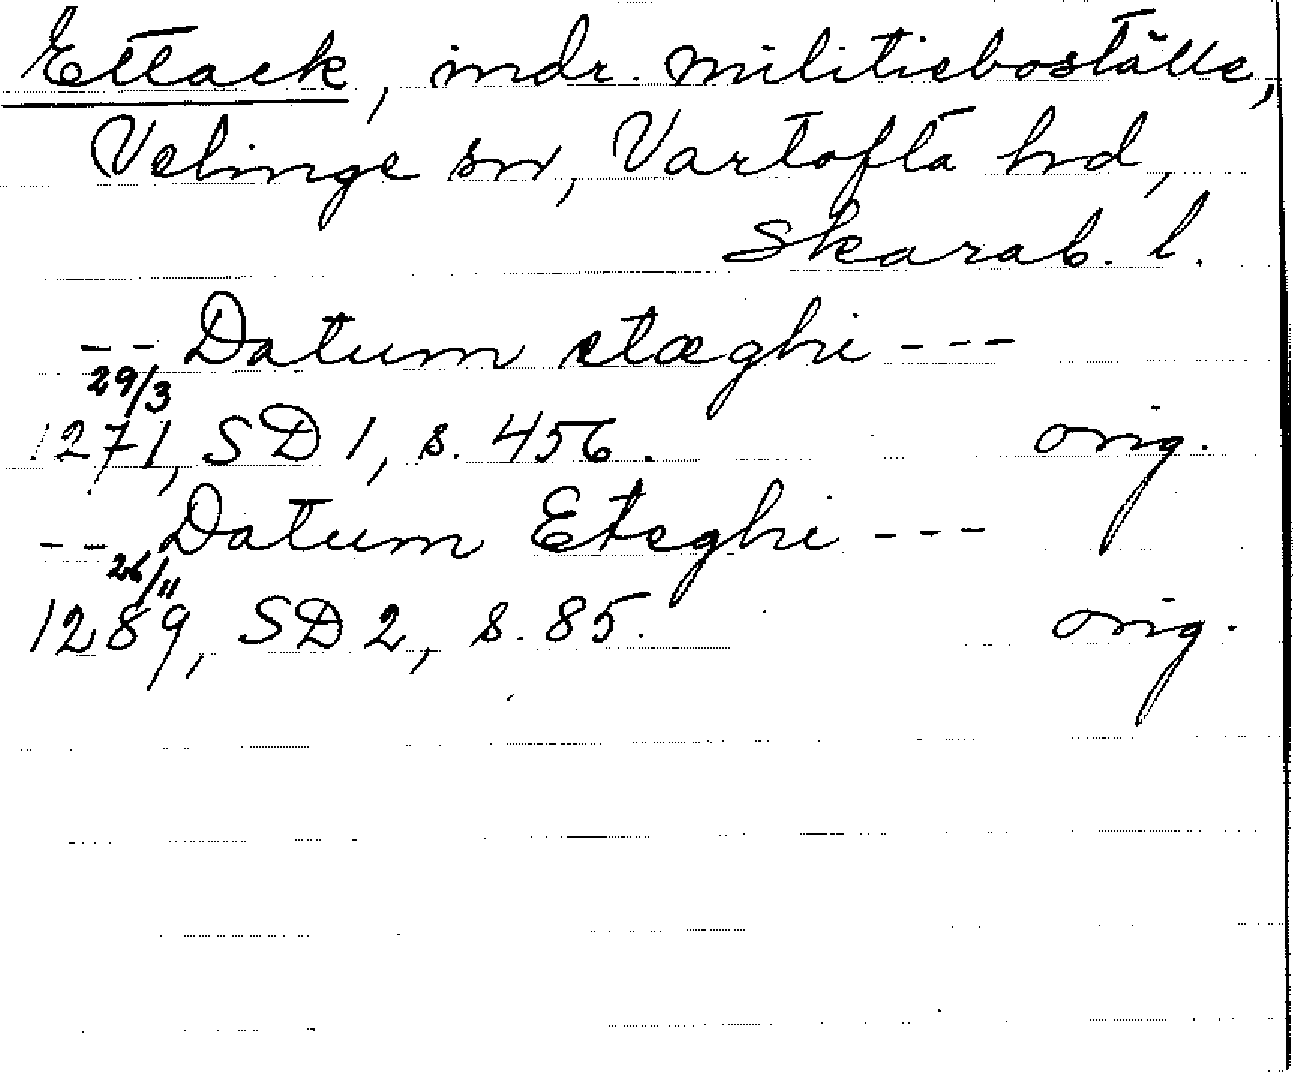 Ettack, indr. militieboställe,
Velinge sn, Vartofta hd,
Skarab. l.
-- Datum etæghi ---
29/3
1271, SD 1, s. 456. orig.
-- Datum Eteghi ---
26/11
1289, SD 2, s. 85. orig.